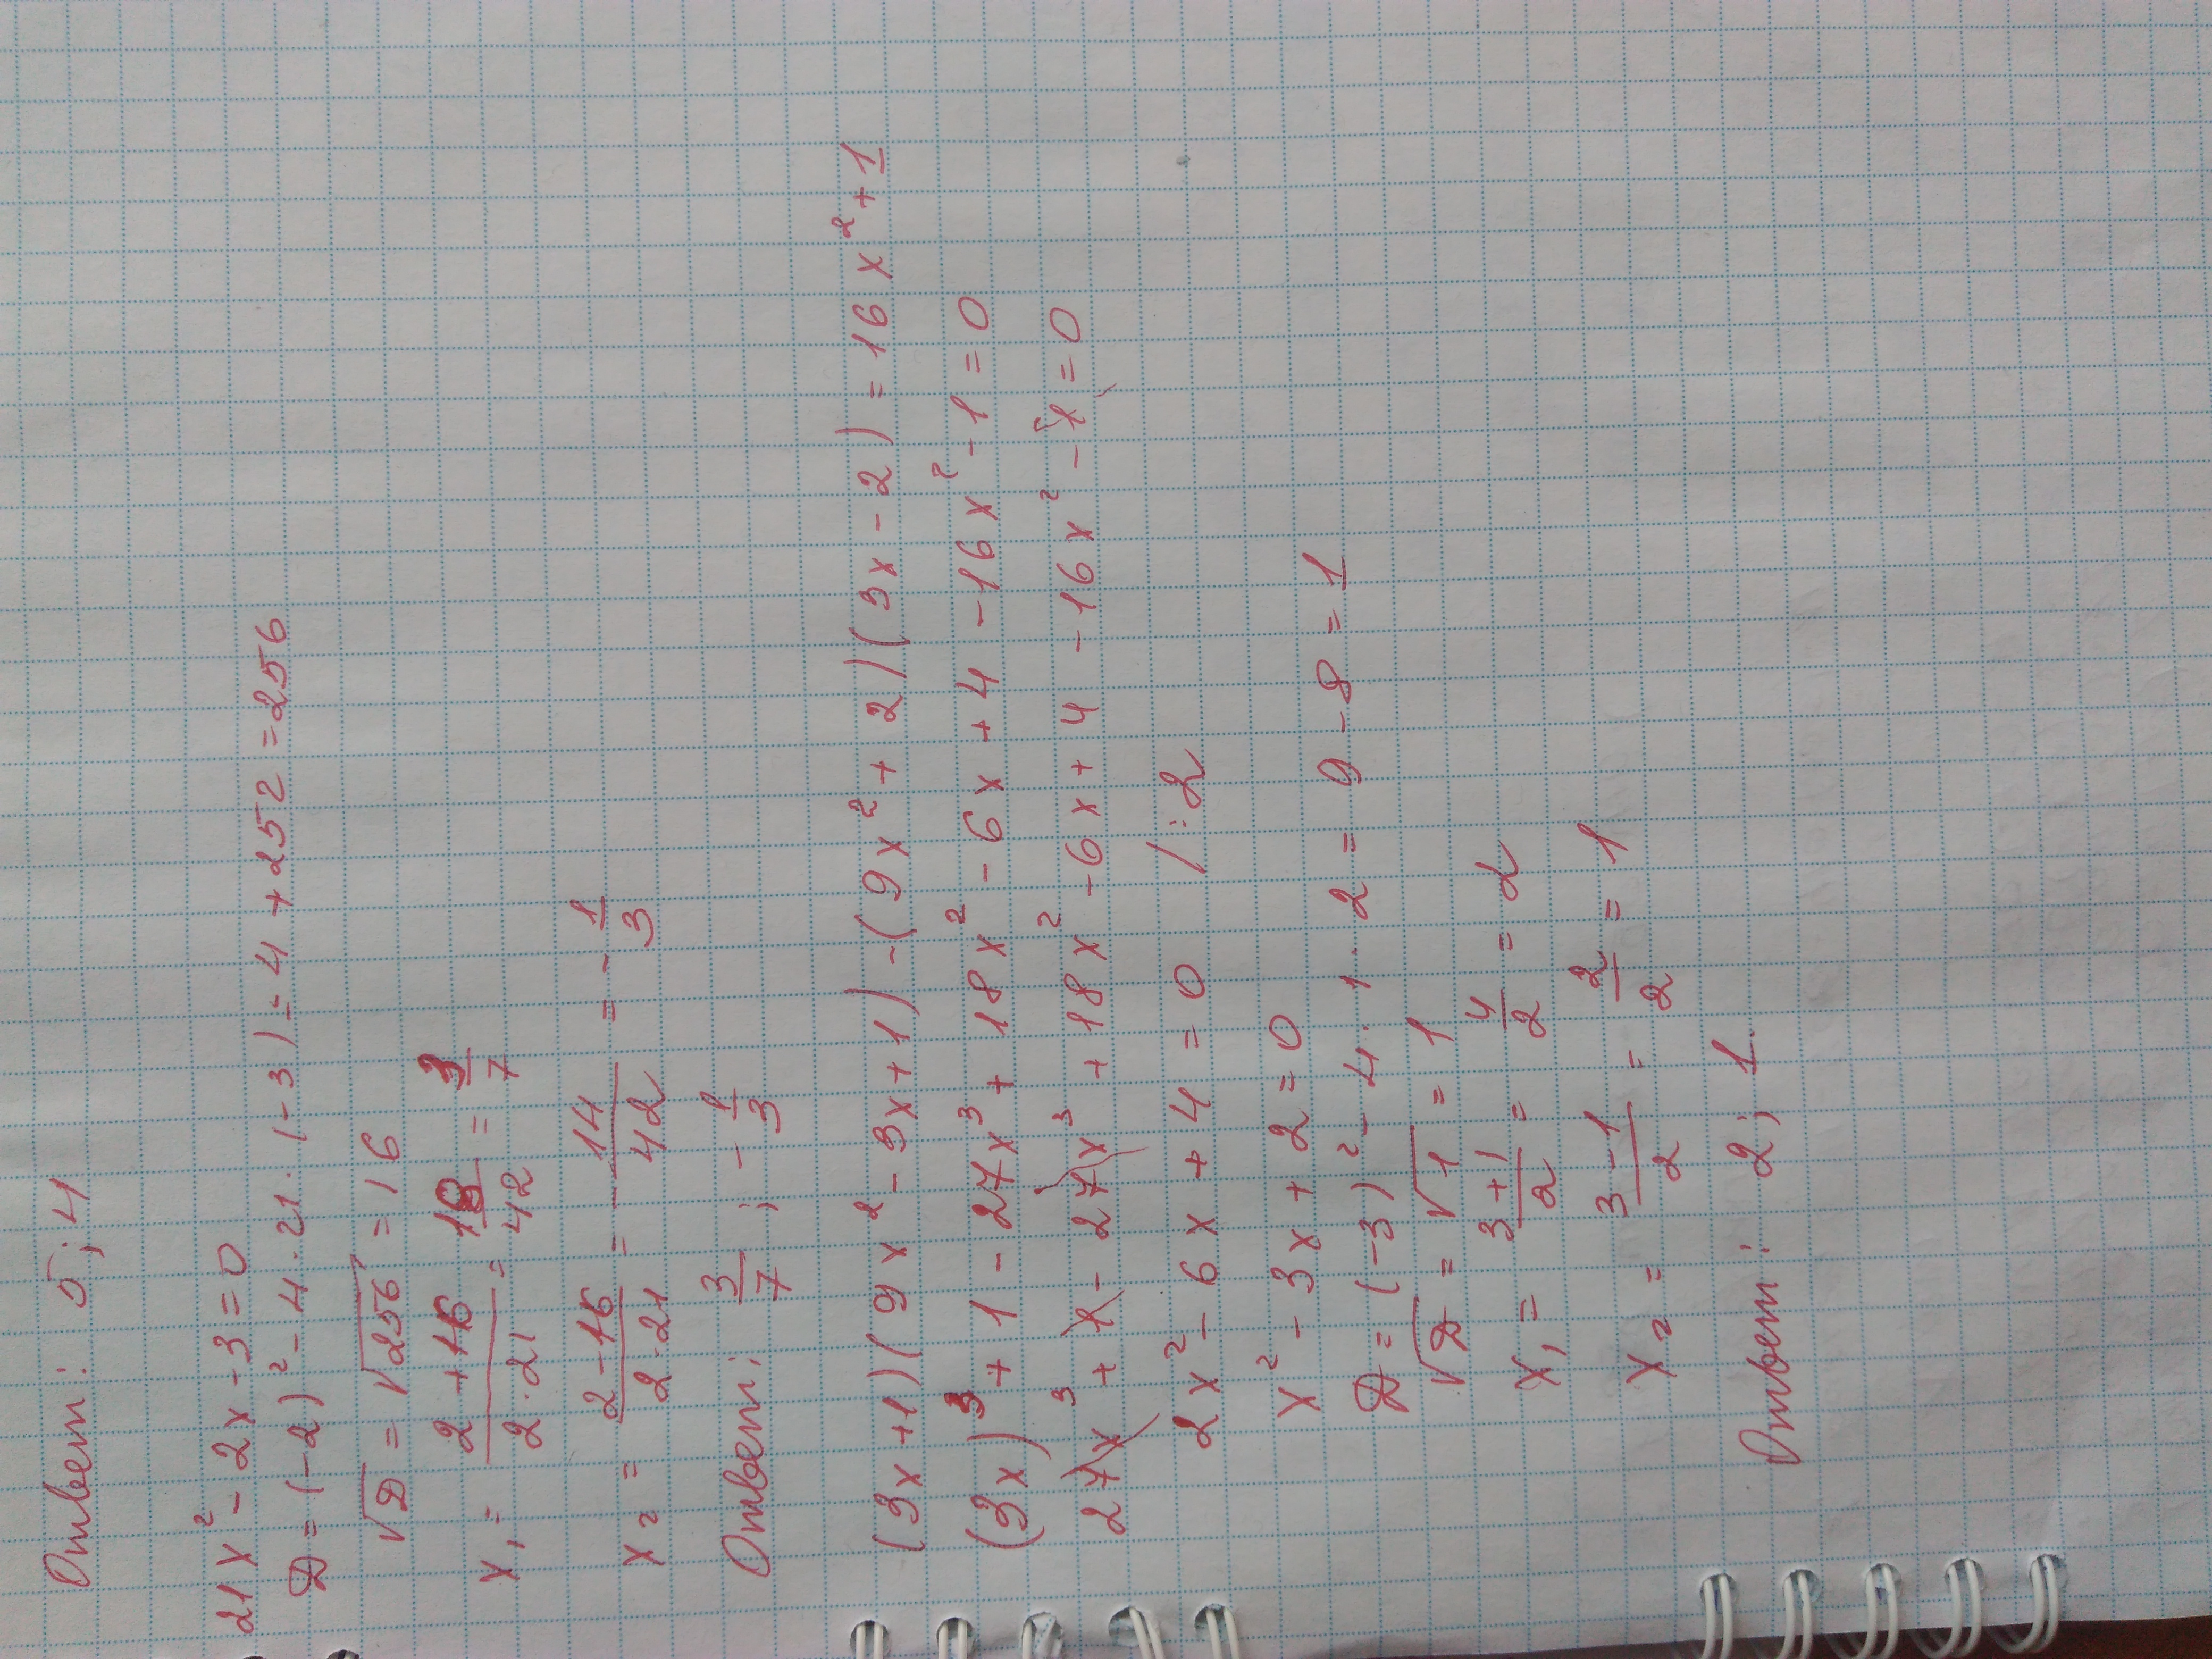 Ответ: 5; 4
21x² - 2x - 3 = 0
D = (-2)² - 4·21·(-3) = 4 + 252 = 256
√D = √256 = 16
x₁ = (2+16)/(2·21) = 18/42 = 3/7
x₂ = (2-16)/(2·21) = -14/42 = -1/3
Ответ: 3/7; -1/3
(3x+1)(9x² - 3x + 1) - (9x² + 2)(3x - 2) = 16x² + 1
(3x)³ + 1 - 27x³ + 18x² - 6x + 4 - 16x² - 1 = 0
27x³ + 1 - 27x³ + 18x² - 6x + 4 - 16x² - 1 = 0
2x² - 6x + 4 = 0 /:2
x² - 3x + 2 = 0
D = (-3)² - 4·1·2 = 9 - 8 = 1
√D = √1 = 1
x₁ = (3+1)/2 = 4/2 = 2
x₂ = (3-1)/2 = 2/2 = 1
Ответ: 2; 1.